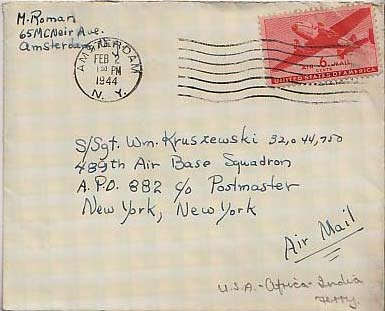 M. Roman
65 McNeir Ave.
Amsterdam
AMSTERDAM
FEB 2
1 30 PM
1944
N. Y.
AIR 6 MAIL
CENTS
UNITED STATES OF AMERICA
S/Sgt. Wm. Kruszewski 32,044,750
489th Air Base Squadron
A.P.O. 882 c/o Postmaster
New York, New York
Air Mail
U.S.A.-Africa-India
ferry.